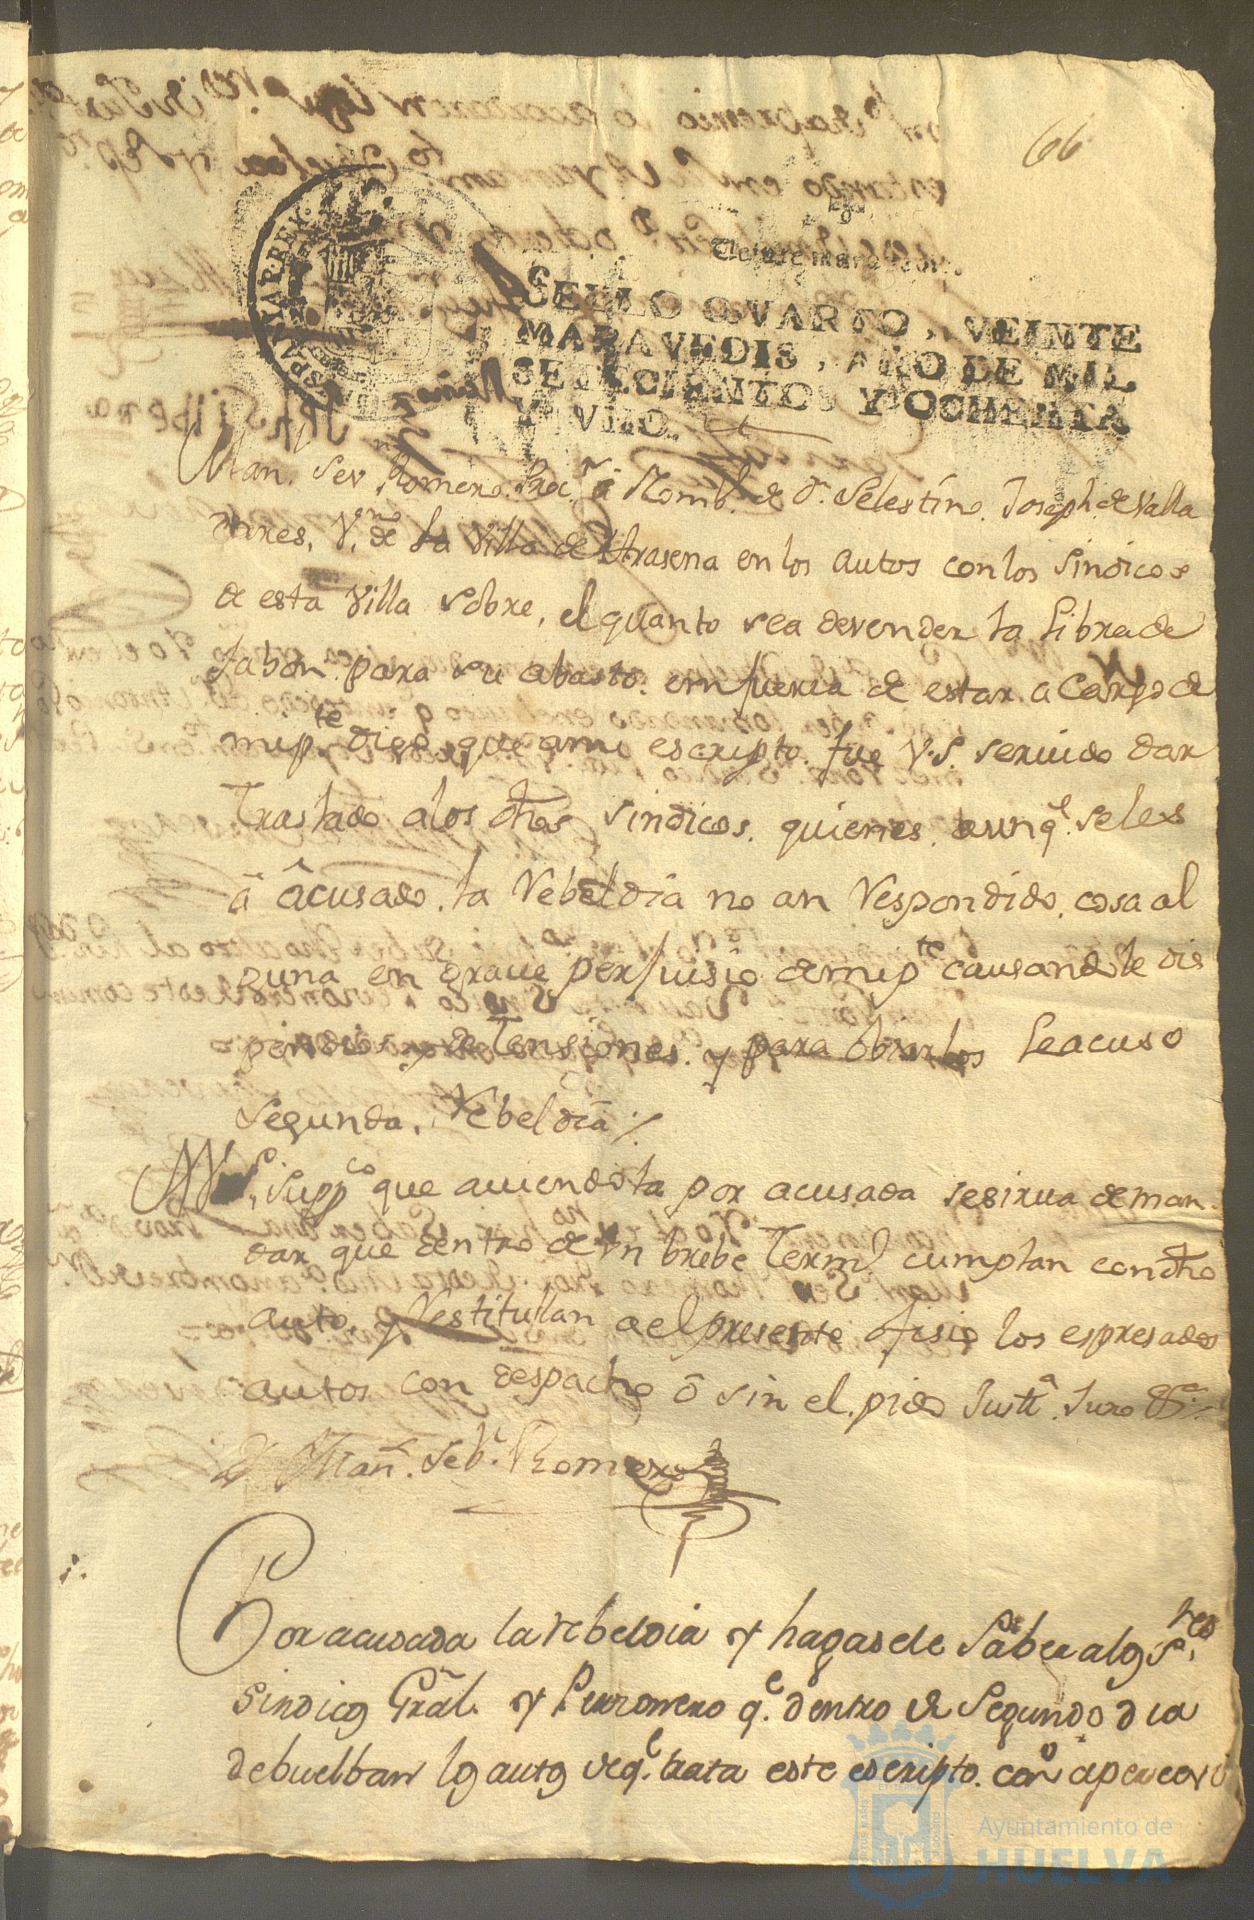 66
Veinte maravedis.
SELLO QVARTO, VEINTE
MARAVEDIS, AÑO DE MIL
SETECIENTOS Y OCHENTA
Y VNO.
HISPANIAR REX
Man. Sevn Romero Procr. a Nombe. de Dn. Selestino Joseph de Valla
dares, Vno. de la Villa de Arasena en los autos con los sindicos
de esta Villa sobre, el quanto sea devender la libra de
Jabon para su abasto. em fuerza de estar a Cargo de
mi pte. digo que ami escripto fue V.S. servido dar
Traslado alos dhos sindicos. quienes. aunqe. seles
â âcusado. la Vebeldia no an Vespondido. cosa al
guna en grave perjuisio demi pte causandole dis
pendios y detensiones. y para obiarlos le acuso
segunda. Vebeldia
A V.S. suppco que aviendola por acusada se sirva de man
dar que dentro de vn brebe Termo cumplan con dho
auto, y Vestitulan a el presente ofisio los espresados
autos con despacho ô sin el. pido Justa. Juro &a.
Mañl. Sebn. Romero
Por acusada la rebeldia y hagasele Saber alos Sres.
Sindicos Gral. y Perzonero qe. dentro de Segundo dia
debuelban los autos de qe. trata este escripto con apercevi
Ayuntamiento de
HUELVA